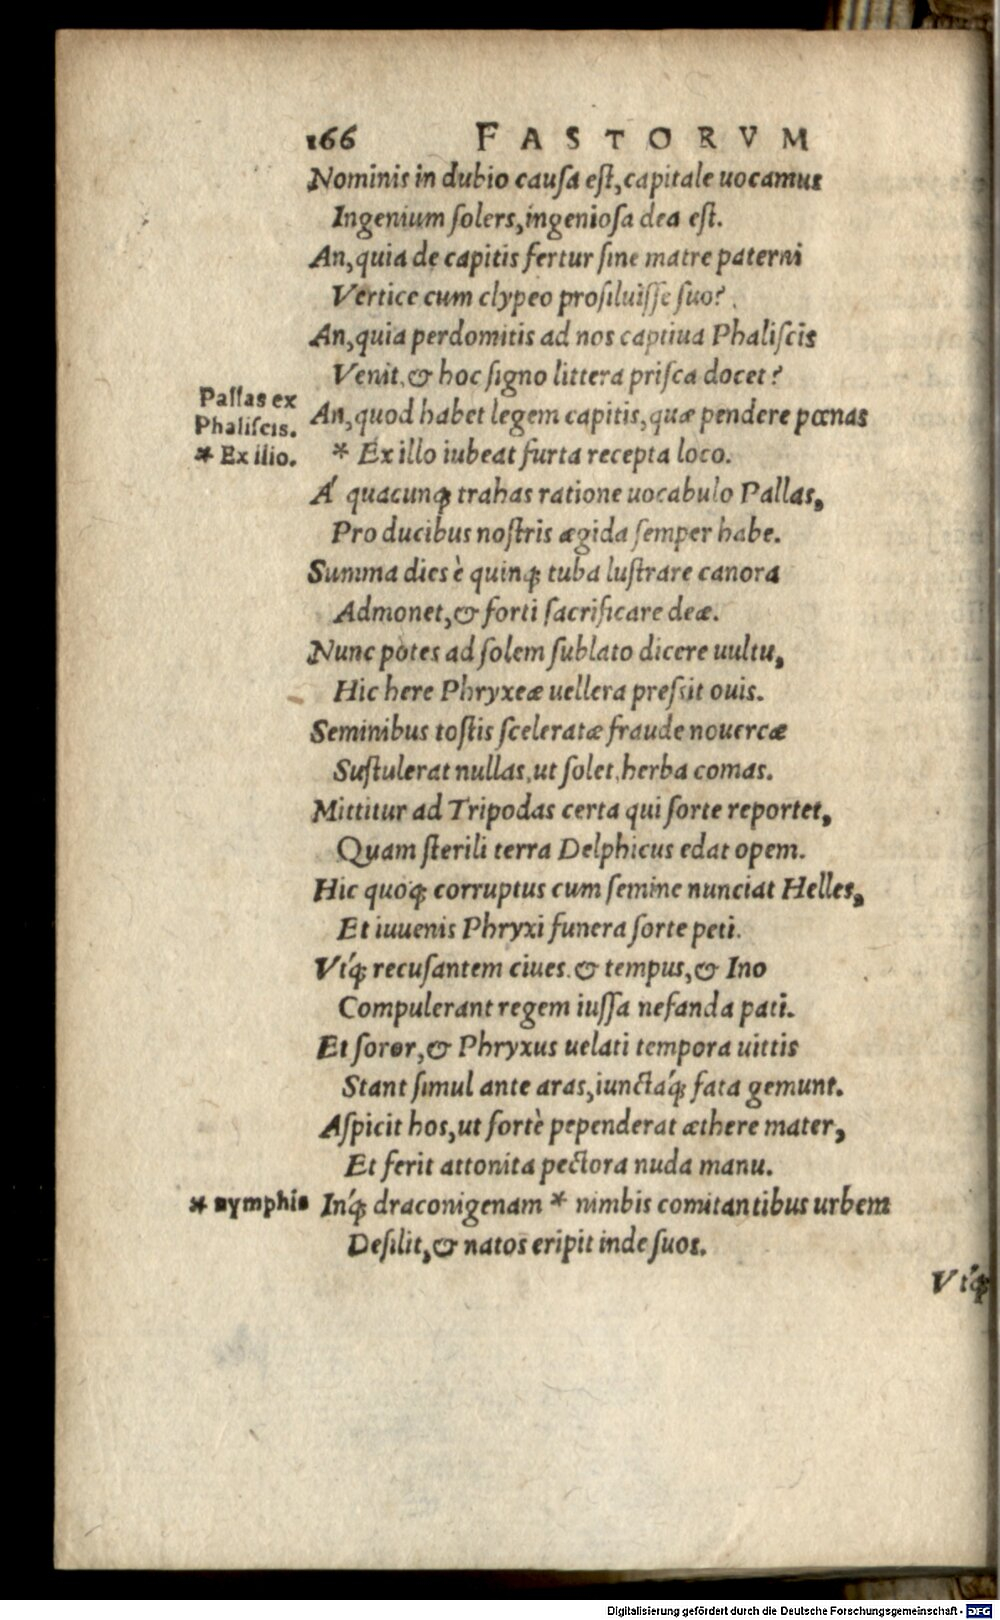 166 FASTORVM
Nominis in dubio causa est, capitale uocamus
Ingenium solers, ingeniosa dea est.
An, quia de capitis fertur sine matre paterni
Vertice cum clypeo prosiluisse suo?
An, quia perdomitis ad nos captiua Phaliscis
Venit, & hoc signo littera prisca docet?
Pallas ex
Phaliscis.
An, quod habet legem capitis, quæ pendere pœnas
* Ex ilio.
* Ex illo iubeat furta recepta loco.
A' quacunq; trahas ratione uocabulo Pallas,
Pro ducibus nostris ægida semper habe.
Summa dies è quinq; tuba lustrare canora
Admonet, & forti sacrificare deæ.
Nunc potes ad solem sublato dicere uultu,
Hic here Phryxeæ uellera pressit ouis.
Seminibus tostis sceleratæ fraude nouercæ
Sustulerat nullas, ut solet, herba comas.
Mittitur ad Tripodas certa qui sorte reportet,
Quam sterili terra Delphicus edat opem.
Hic quoq; corruptus cum semine nunciat Helles,
Et iuuenis Phryxi funera sorte peti.
Vtq́; recusantem ciues. & tempus, & Ino
Compulerant regem iussa nefanda pati.
Et soror, & Phryxus uelati tempora uittis
Stant simul ante aras, iunctaq́; fata gemunt.
Aspicit hos, ut fortè pependerat æthere mater,
Et ferit attonita pectora nuda manu.
* nymphis
Inq́; draconigenam * nimbis comitantibus urbem
Desilit, & natos eripit inde suos.
Vtq́;
Digitalisierung gefördert durch die Deutsche Forschungsgemeinschaft - DFG